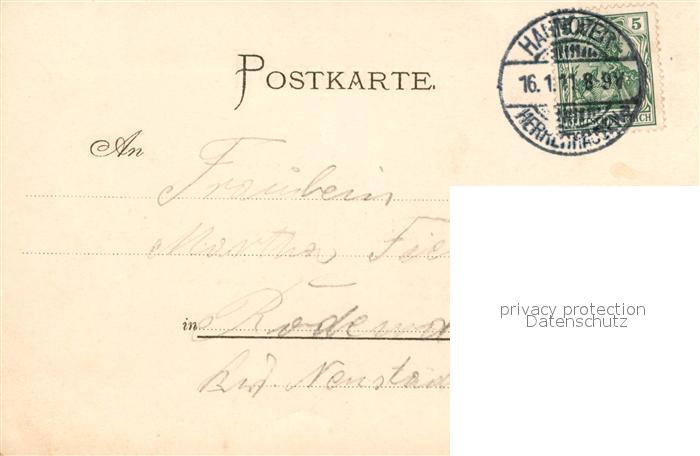 POSTKARTE.
HANNOVER
16.1.11.8-9V
HERRENHAUSEN
5
An
Fräulein
Martha
in
Neustad
privacy protection
Datenschutz